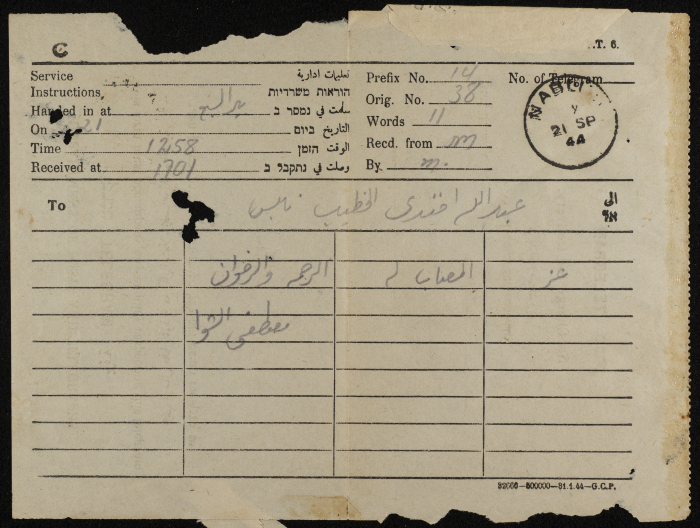 C
T. 6.
Service تعليمات ادارية
Instructions הוראות משרדיות
Handed in at بير السبع سلمت في נמסר ב
On 21 التاريخ ביום
Time 1258 الوقت הזמן
Received at 1701 وصلت في נתקבל ב
Prefix No. 14 No. of Telegram
Orig. No. 38
Words 11
Recd. from m
By. m.
NABLUS
21 SP
44
To عبد الله افندي الخطيب نابلس الى אל
عز المصاب لم الرحمه والرضوان
مصطفى الشوا
32000—500000—31.1.44—G.C.P.